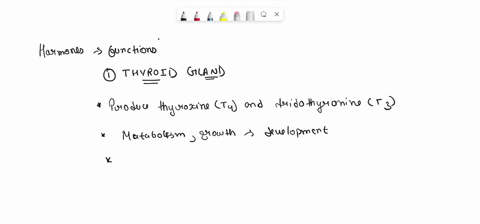 Hormones → functions
① THYROID GLAND
* Produce thyroxine (T4) and triidothyronine (T3)
* Metabolism, growth → development
*